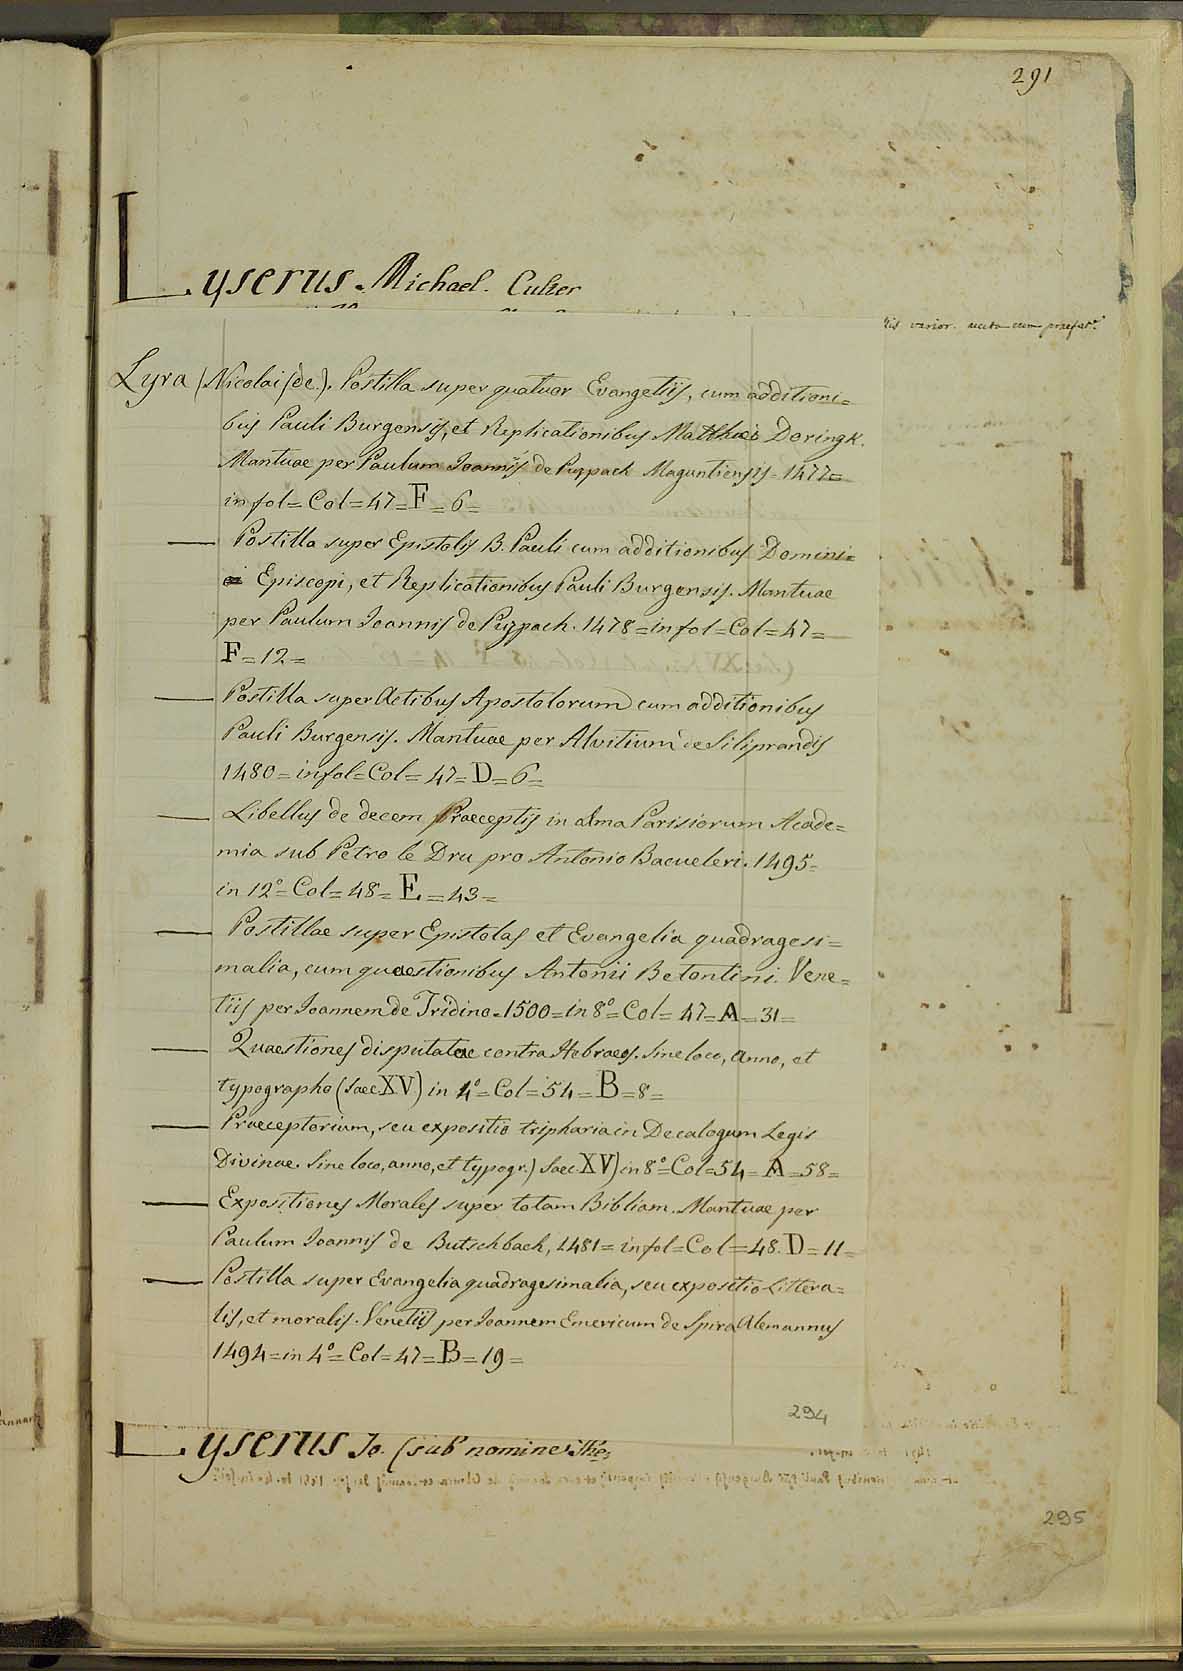 291
Lyserus. Michael. Culter
tis varior. aucta cum praefat.e
Lyra (Nicolai de). Postilla super quatuor Evangeliis, cum additioni=
bus Pauli Burgensis, et Replicationibus Matthaei Doringk.
Mantuae per Paulum Joannis de Puzpach Maguntiensis = 1477=
in fol = Col = 47 = F = 6 =
— Postilla super Epistolis B. Pauli cum additionibus Domini=
ci Episcopi, et Replicationibus Pauli Burgensis. Mantuae
per Paulum Joannis de Puzpach. 1478 = in fol = Col = 47 =
F = 12 =
— Postilla super Actibus Apostolorum cum additionibus
Pauli Burgensis. Mantuae per Alvitium de Siliprandis
1480 = in fol = Col = 47 = D = 6 =
— Libellus de decem Praeceptis in alma Parisiorum Acade=
mia sub Petro le Dru pro Antonio Bacueleri. 1495 =
in 12º = Col = 48 = E = 43 =
— Postillae super Epistolas et Evangelia quadragesi=
malia, cum quaestionibus Antonii Betontini. Vene=
tiis per Joannem de Tridino = 1500 = in 8º = Col = 47 = A = 31 =
— Quaestiones disputatae contra Hebraeos. Sine loco, anno, et
typographo (saec. XV) in 4º = Col = 54 = B = 8 =
— Praeceptorium, seu expositio tripharia in Decalogum Legis
Divinae. Sine loco, anno, et typogr.) Saec. XV) in 8º = Col = 54 = A = 58 =
— Expositiones Morales super totam Bibliam. Mantuae per
Paulum Joannis de Butschbach, 1481 = in fol = Col = 48. D = 11 =
— Postilla super Evangelia quadragesimalia, seu expositio Littera=
lis, et moralis. Venetiis per Joannem Emericum de Spira Alemannus
1494 = in 4º = Col = 47 = B = 19 =
294
Lyserus Jo. (sub nomine The=
295